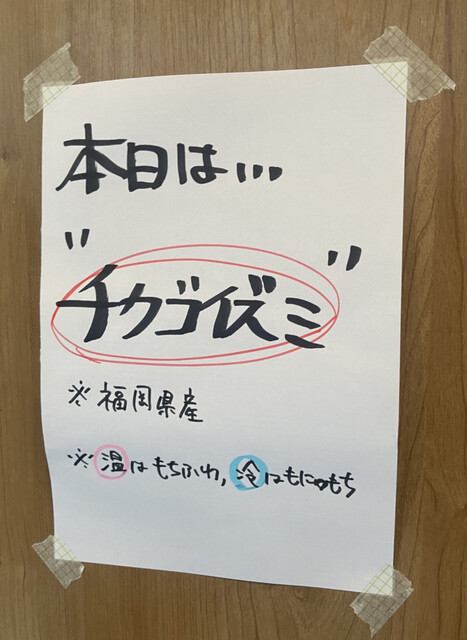 本日は...
"チクゴイズミ"
※福岡県産
※温はもちふわ,冷はもにゅもち